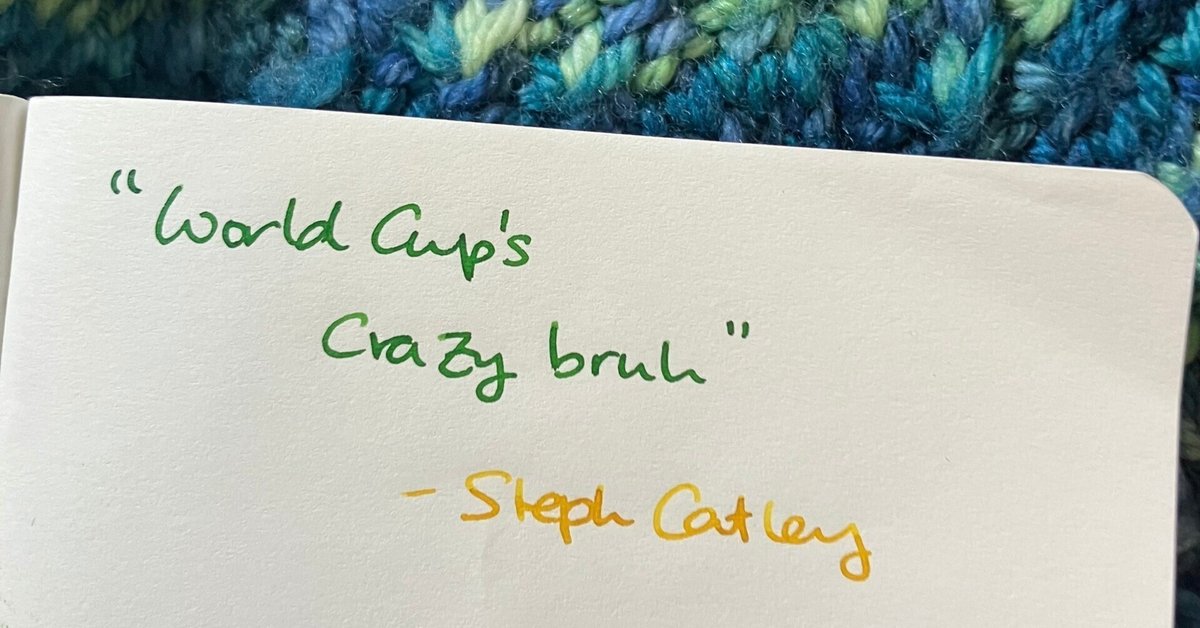 "World Cup's
Crazy bruh"
- Steph Catley